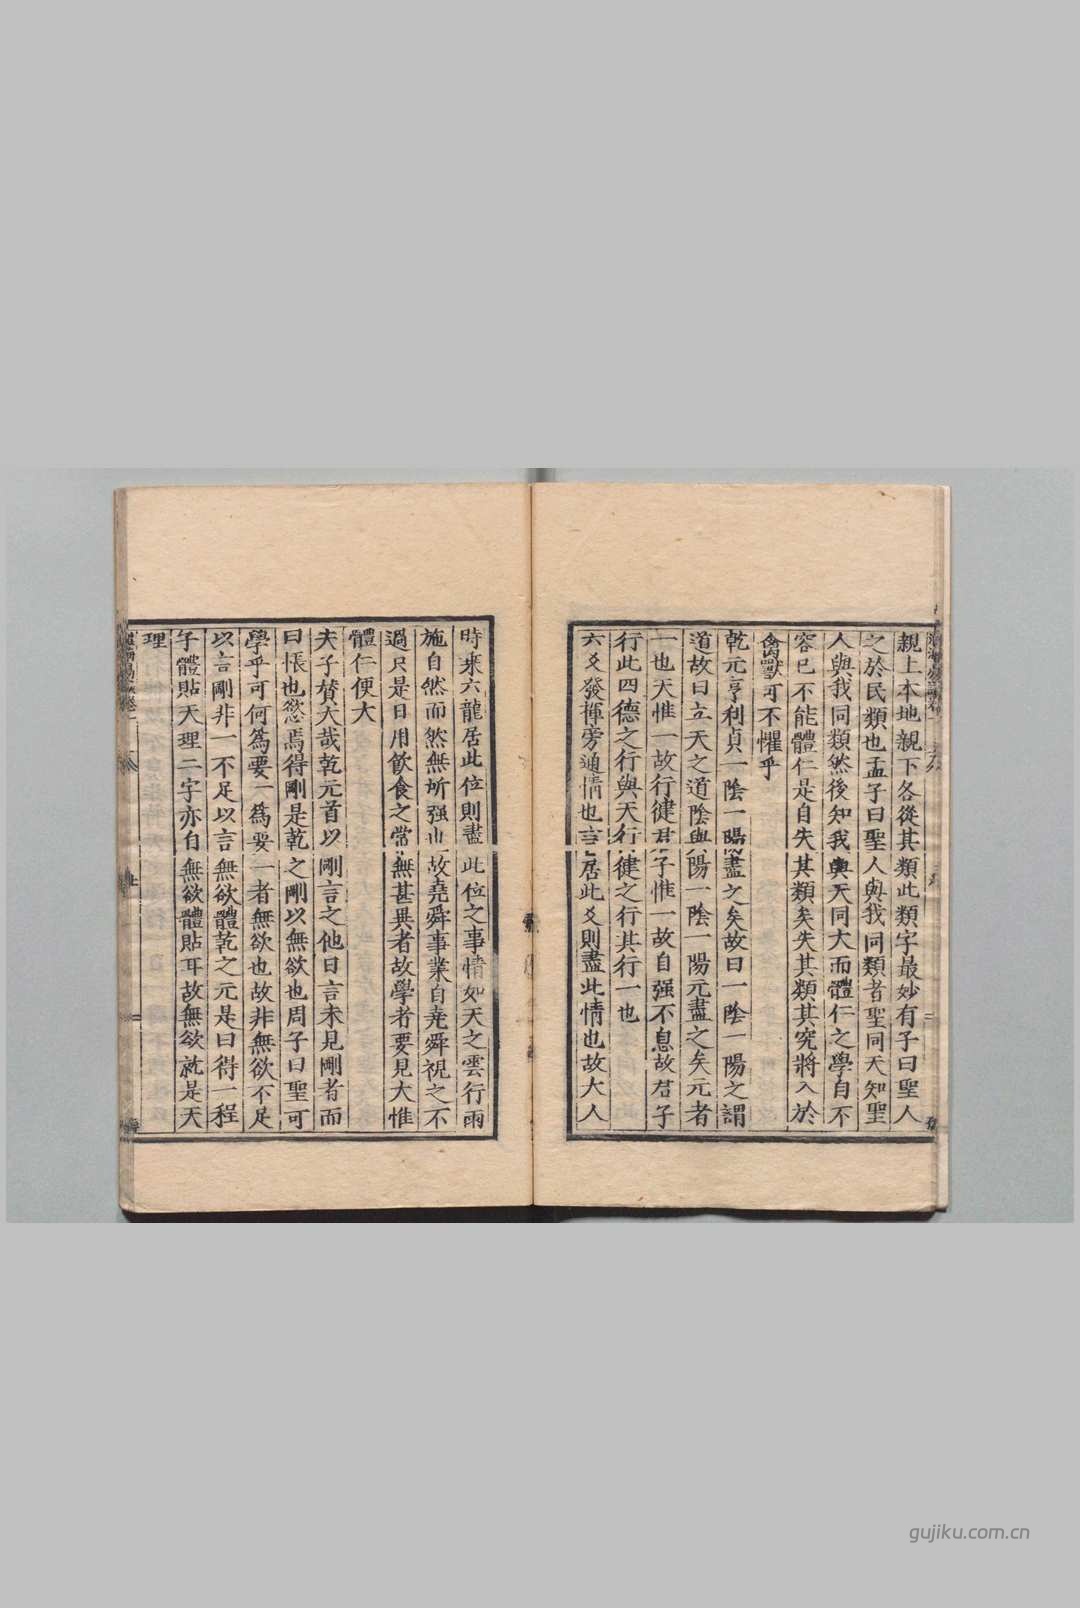 親上本地親下各從其類此類字最妙有子曰聖人
之於民類也孟子曰聖人與我同類者聖同天知聖
人與我同類然後知我與天同大而體仁之學自不
容已不能體仁是自失其類矣失其類其究將入於
禽獸可不懼乎
乾元亨利貞一陰一陽盡之矣故曰一陰一陽之謂
道故曰立天之道陰與陽一陰一陽元盡之矣元者
一也天惟一故行健君子惟一故自强不息故君子
行此四德之行與天行健之行其行一也
六爻發揮旁通情也言居此爻則盡此情也故大人
時乘六龍居此位則盡此位之事情如天之雲行雨
施自然而然無所强也故堯舜事業自堯舜視之不
過只是日用飲食之常無甚異者故學者要見大惟
體仁便大
夫子贊大哉乾元首以剛言之他日言未見剛者而
曰悵也慾焉得剛是乾之剛以無欲也周子曰聖可
學乎可何爲要一爲要一者無欲也故非無欲不足
以言剛非一不足以言無欲體乾之元是曰得一程
子體貼天理二字亦自無欲體貼耳故無欲就是天
理
gujiku.com.cn